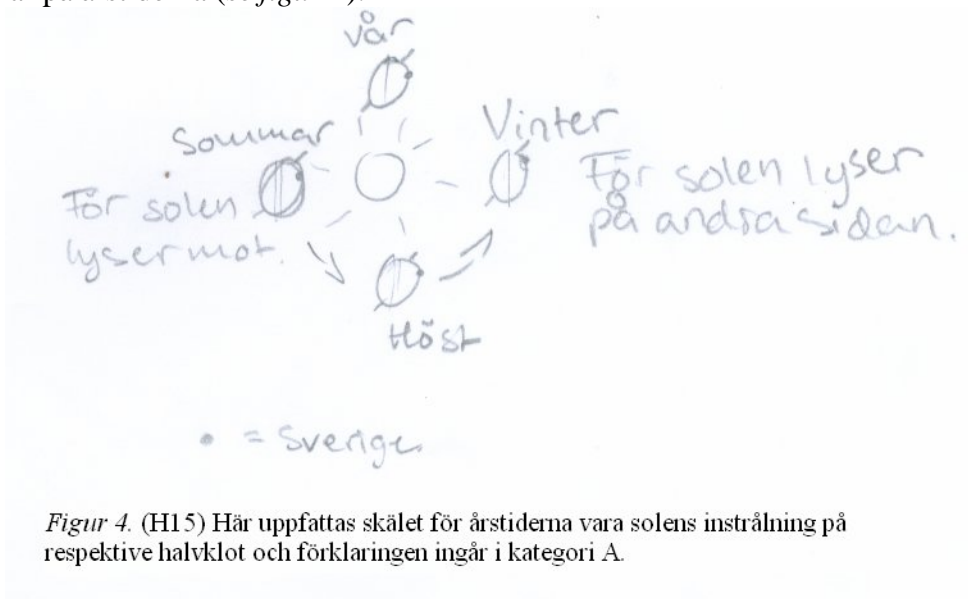 vår
Sommar
Vinter
För solen
lyser mot.
För solen lyser
på andra sidan.
Höst
• = Sverige
Figur 4. (H15) Här uppfattas skälet för årstiderna vara solens instrålning på
respektive halvklot och förklaringen ingår i kategori A.